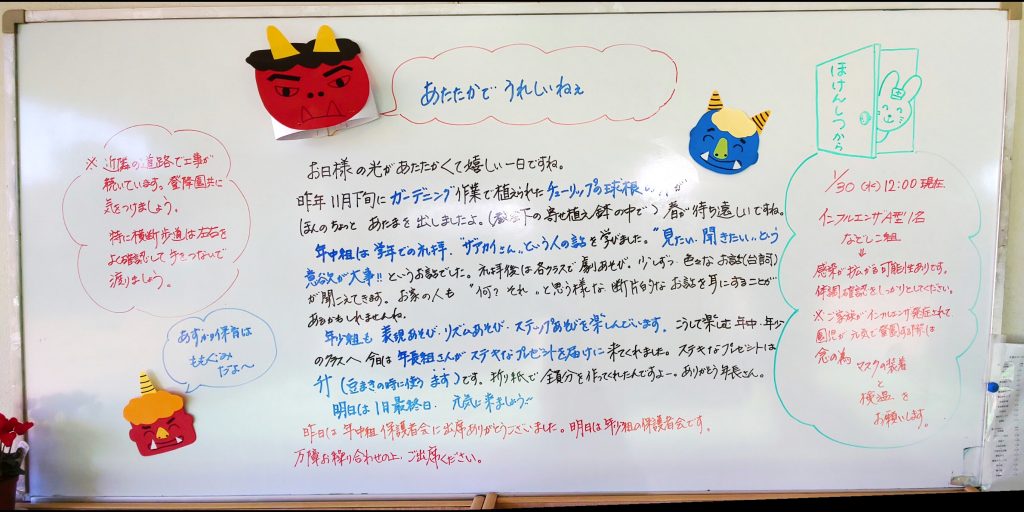 あたたかで うれしいねぇ
※ 近隣の道路で工事が
続いています。登降園共に
気をつけましょう。
特に横断歩道は左右を
よく確認して 手をつないで
渡りましょう。
あすかの保育は
ももぐみ
だよ〜
お日様の光があたたかくて嬉しい一日ですね。
昨年11月下旬にガーデニング作業で植えられたチューリップの球根の芽が
ほんのちょっと あたまを出しましたよ。(下の寄せ植え鉢の中で) 春が待ち遠しいですね。
年中組は学年での礼拝、"ザアカイさん"という人の話を学びました。"見たい、聞きたい"という
意欲が大事!!というお話でした。礼拝後は各クラスで劇あそび。少しずつ色々なお話(台詞)
が聞こえてきます。お家の人も "何?それ"と思う様な断片的なお話を耳にすることが
あるかもしれませんね。
年少組も 表現あそび・リズムあそび・ステップあそびを楽しんでいます。こうして楽しむ年中・年少
のクラスへ 今日は年長組さんがステキなプレゼントを届けに来てくれました。ステキなプレゼントは
升(豆まきの時に使うます)です。折り紙で全員分を作ってくれたんですよー。ありがとう年長さん。
明日は1月最終日。元気に来ましょう!!
昨日は年中組保護者会に出席ありがとうございました。明日は年少組の保護者会です。
万障お繰り合わせの上、ご出席ください。
ほけんしつから
1/30 (水) 12:00 現在
インフルエンザA型 1名
なでしこ組
⇓
感染が拡がる可能性ありです。
体調確認をしっかりとしてください。
※ご家族がインフルエンザ発症されて、
園児が元気で登園する際は
念の為
マスクの装着
と
検温 を
お願いします。